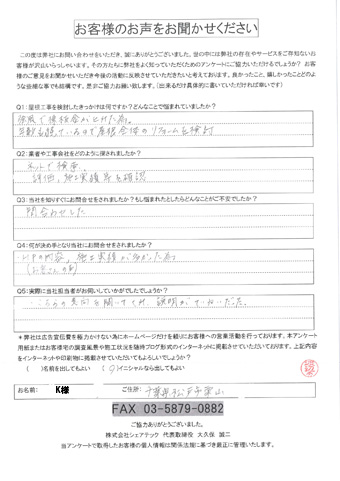 お客様のお声をお聞かせください
この度は弊社にお問い合わせをいただき、誠にありがとうございました。世の中には弊社の存在やサービスをご存知ないお
客様が沢山いらっしゃいます。その方たちに弊社をよく知っていただくためのアンケートにご協力いただけるでしょうか? お客
様のご意見をお聞かせいただき今後の活動に反映させていただきたいと考えております。良かったこと、嬉しかったことどのよ
うな些細な事でも結構です。是非ご協力お願い致します。(出来るだけ具体的に書いていただければ幸いです)
Q1:屋根工事を検討したきっかけは何ですか?どんなことで悩まれていましたか?
Q2:業者や工事会社をどのように探されましたか?
ネットで検索。
評価、施工実績等を確認
Q3:当社を知りすぐにお問合せをされましたか?もし悩まれたとしたらどんなことがご不安でしたか?
問合わせした
Q4:何が決め手となり当社にお問合せをされましたか?
HPの内容、施工実績が多かった為
Q5:実際に当社担当者がお伺いしていかがでしたでしょうか?
こちらの意向を聞いてくれ、説明がていねいだった
*弊社は広告宣伝費を極力かけない為にホームページだけを頼りにお客様への営業活動を行っております。本アンケート
用紙またはお客様宅の調査風景や施工状況を随時ブログ形式のインターネットに掲載させていただいております。上記内容
をインターネットや印刷物に掲載させていただいてもよろしいでしょうか?
( )名前を出してもよい (○)イニシャルなら出してもよい
お名前: K様 ご住所: 千葉県松戸市
FAX 03-5879-0882
ご協力ありがとうございました。
株式会社シェアテック 代表取締役 大久保 誠二
当アンケートで取得したお客様の個人情報は関係法規に基づき厳正に管理いたします。